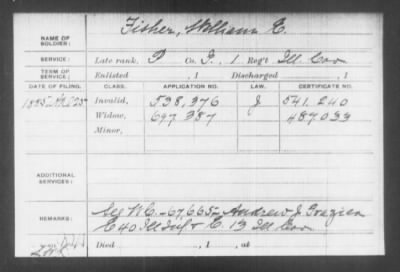 NAME OF SOLDIER: Fisher, William E.
SERVICE: Late rank, P Co. I, 1 Reg't Ill Cav
TERM OF SERVICE: Enlisted , 1 Discharged , 1
DATE OF FILING. CLASS. APPLICATION NO. LAW. CERTIFICATE NO.
1885 Invalid, 538,376 J 541.240
Widow, 697.387 487033
Minor,
ADDITIONAL SERVICES:
REMARKS: See W.C.-67,665- Andrew J.
E 40 Ill Inf & E. 13 Ill Cav
Died , 1 , at